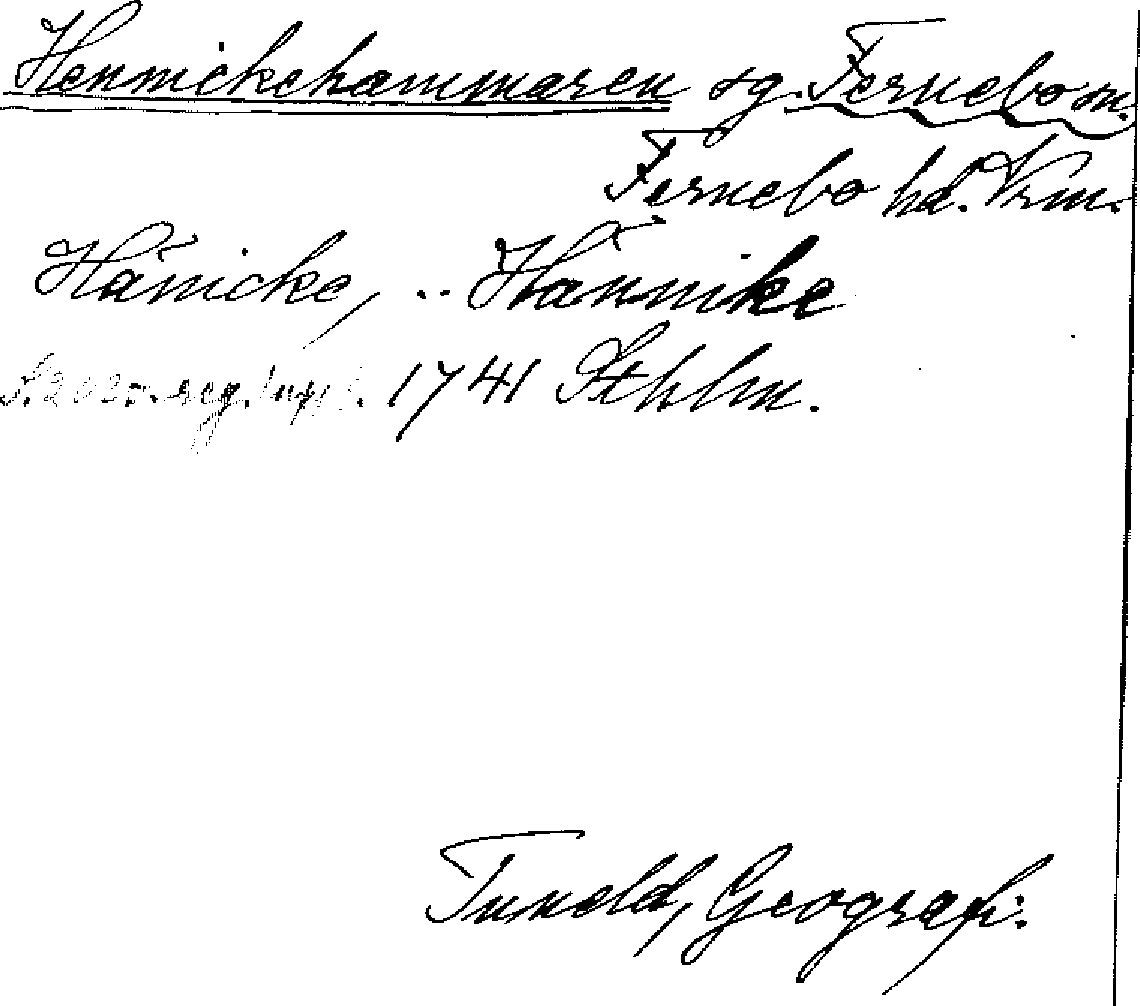 Hennickehammaren sg. Fernebo sn.
Fernebo hd. Vrm.
Hänicke, .. Hännike
reg. 1741 Sthlm.
Tuneld, Geografi.